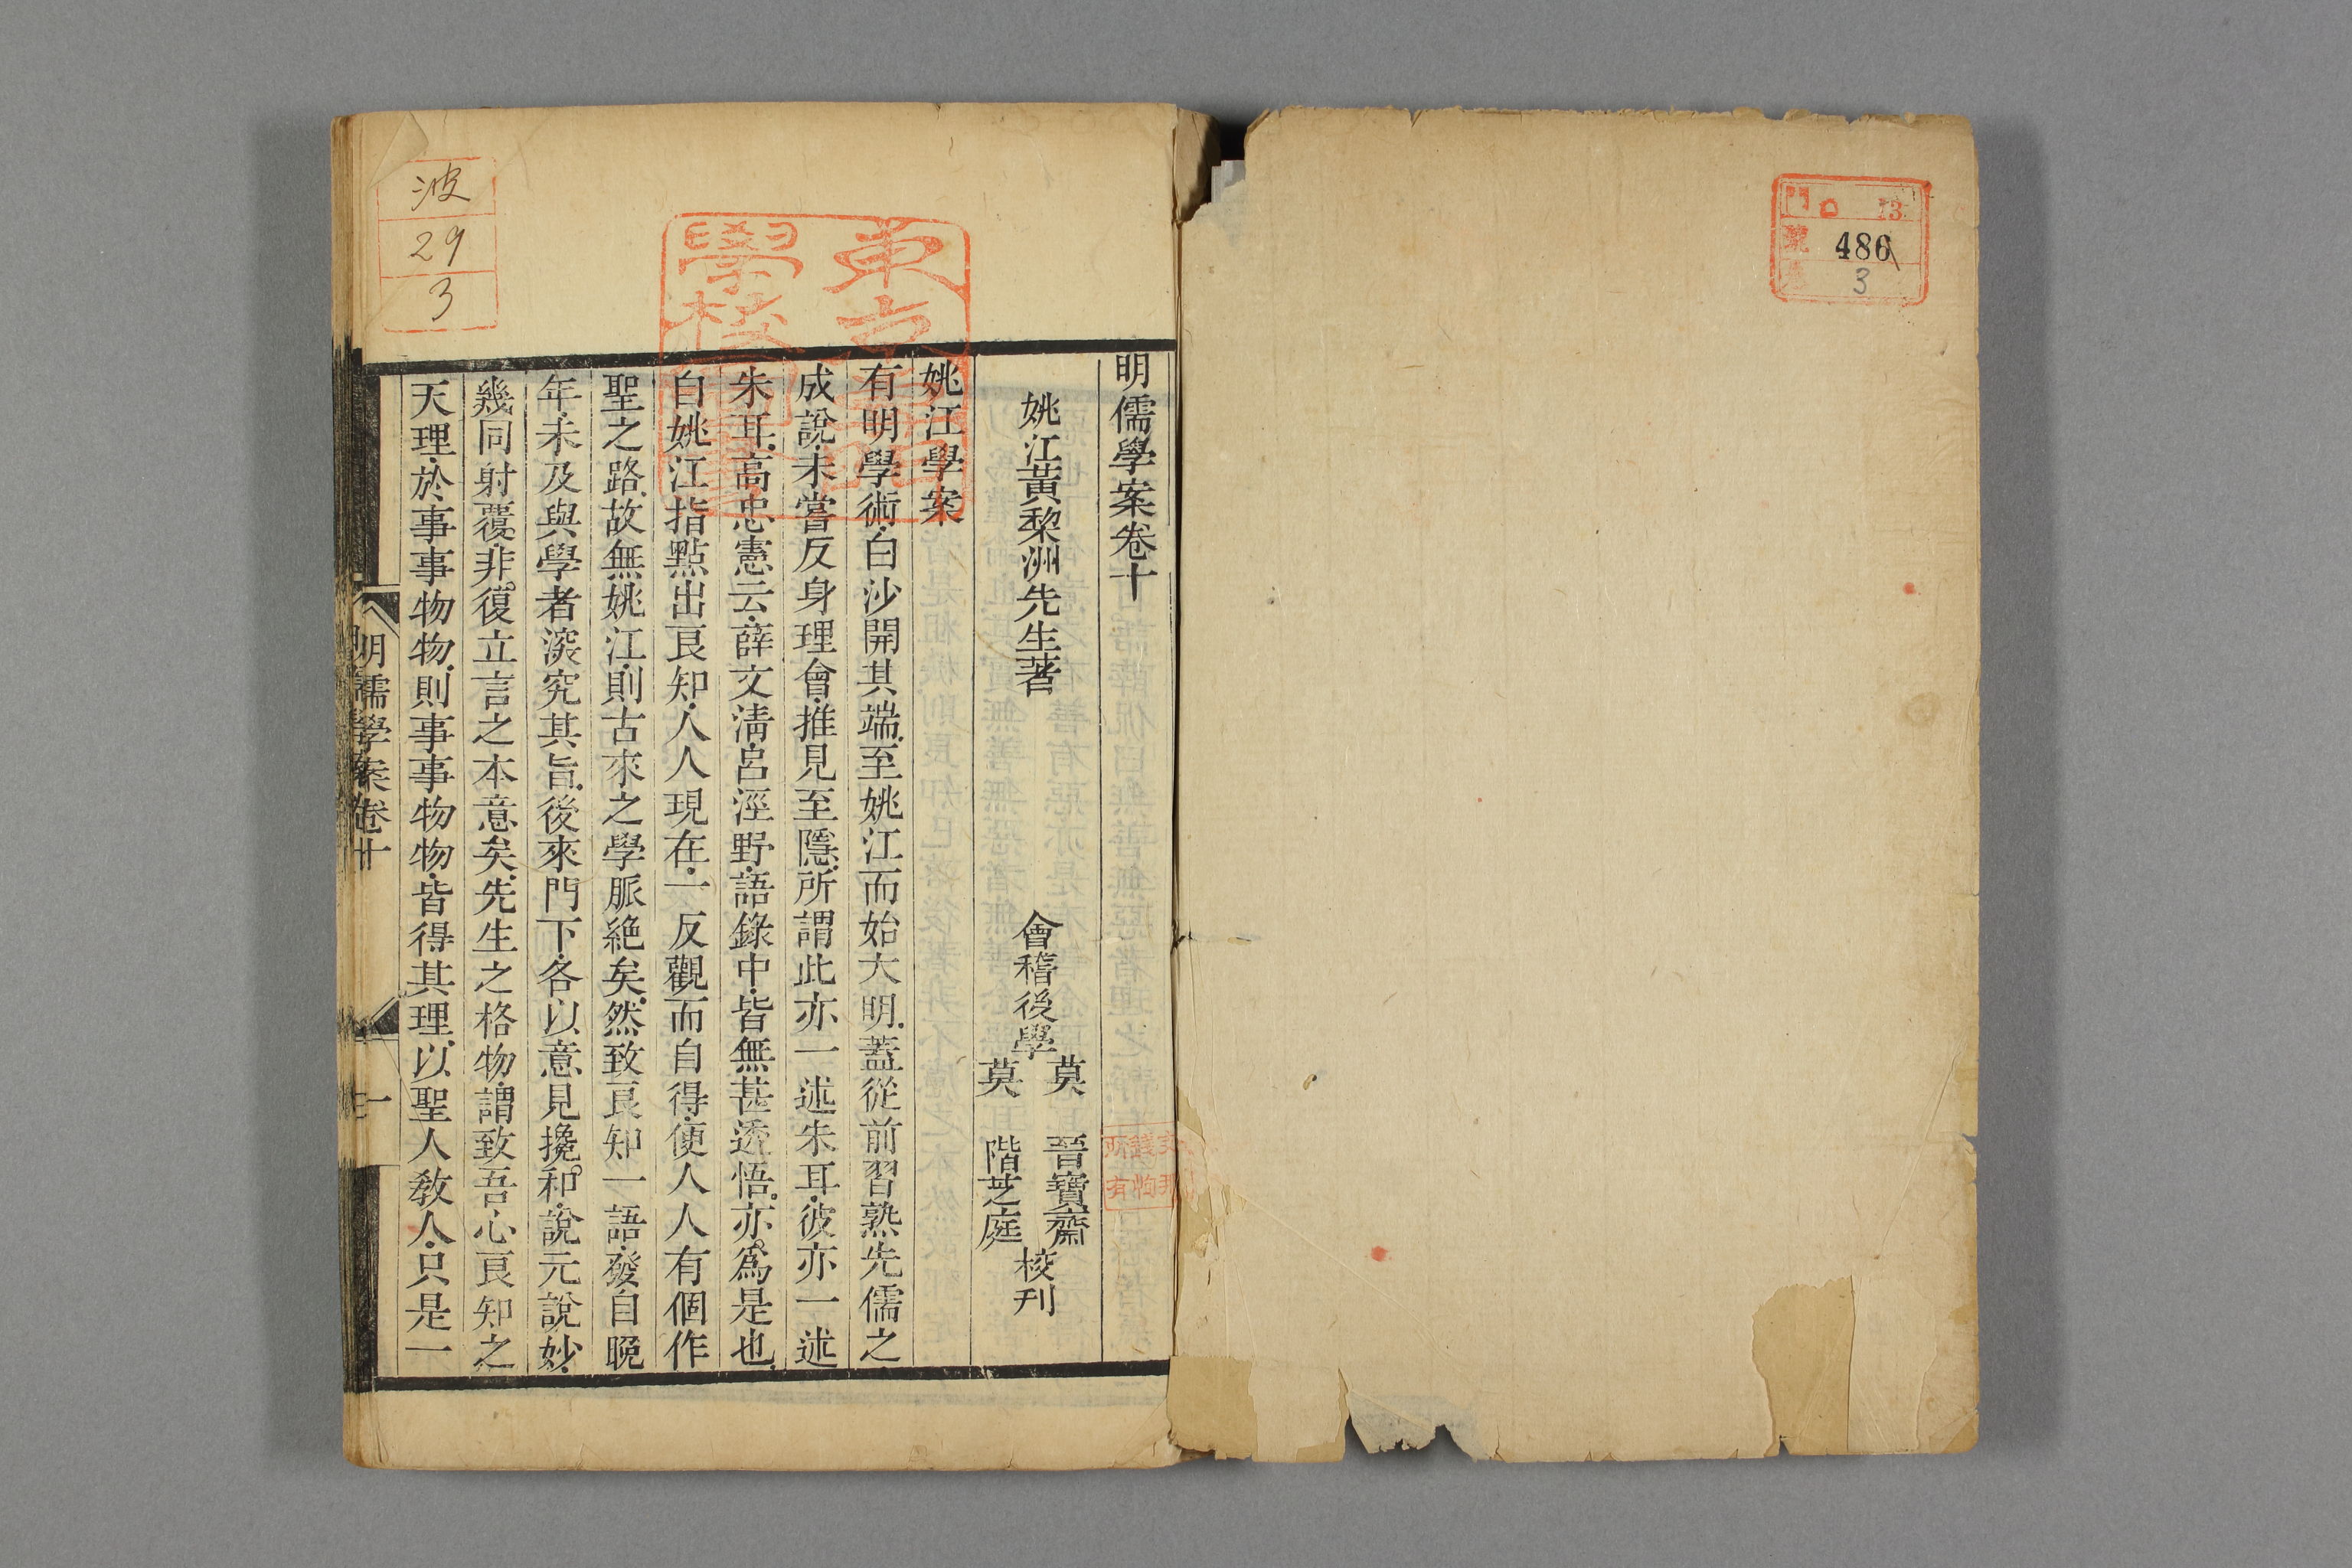 門 口 13
號 486
3
明儒學案卷十
姚江黃棃洲先生著
會稽後學
莫晉寶齋
莫階芝庭
校刊
姚江學案
有明學術白沙開其端至姚江而始大明蓋從前習熟先儒之
成說未嘗反身理會推見至隱所謂此亦一述朱耳彼亦一述
朱耳高忠憲云薛文淸呂涇野語錄中皆無甚透悟亦爲是也
自姚江指點出良知人人現在一反觀而自得便人人有個作
聖之路故無姚江則古來之學脈絶矣然致良知一語發自晚
年未及與學者深究其旨後來門下各以意見攙和說元說妙
幾同射覆非復立言之本意矣先生之格物謂致吾心良知之
天理於事事物物則事事物物皆得其理以聖人敎人只是一
明儒學案卷十
一
波
29
3